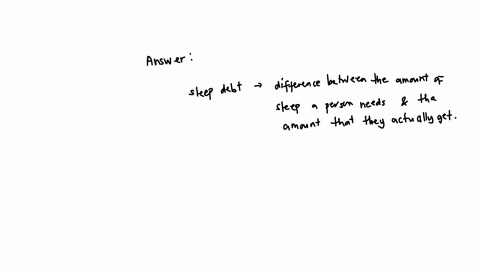 Answer:
sleep debt → difference between the amount of
sleep a person needs & the
amount that they actually get.